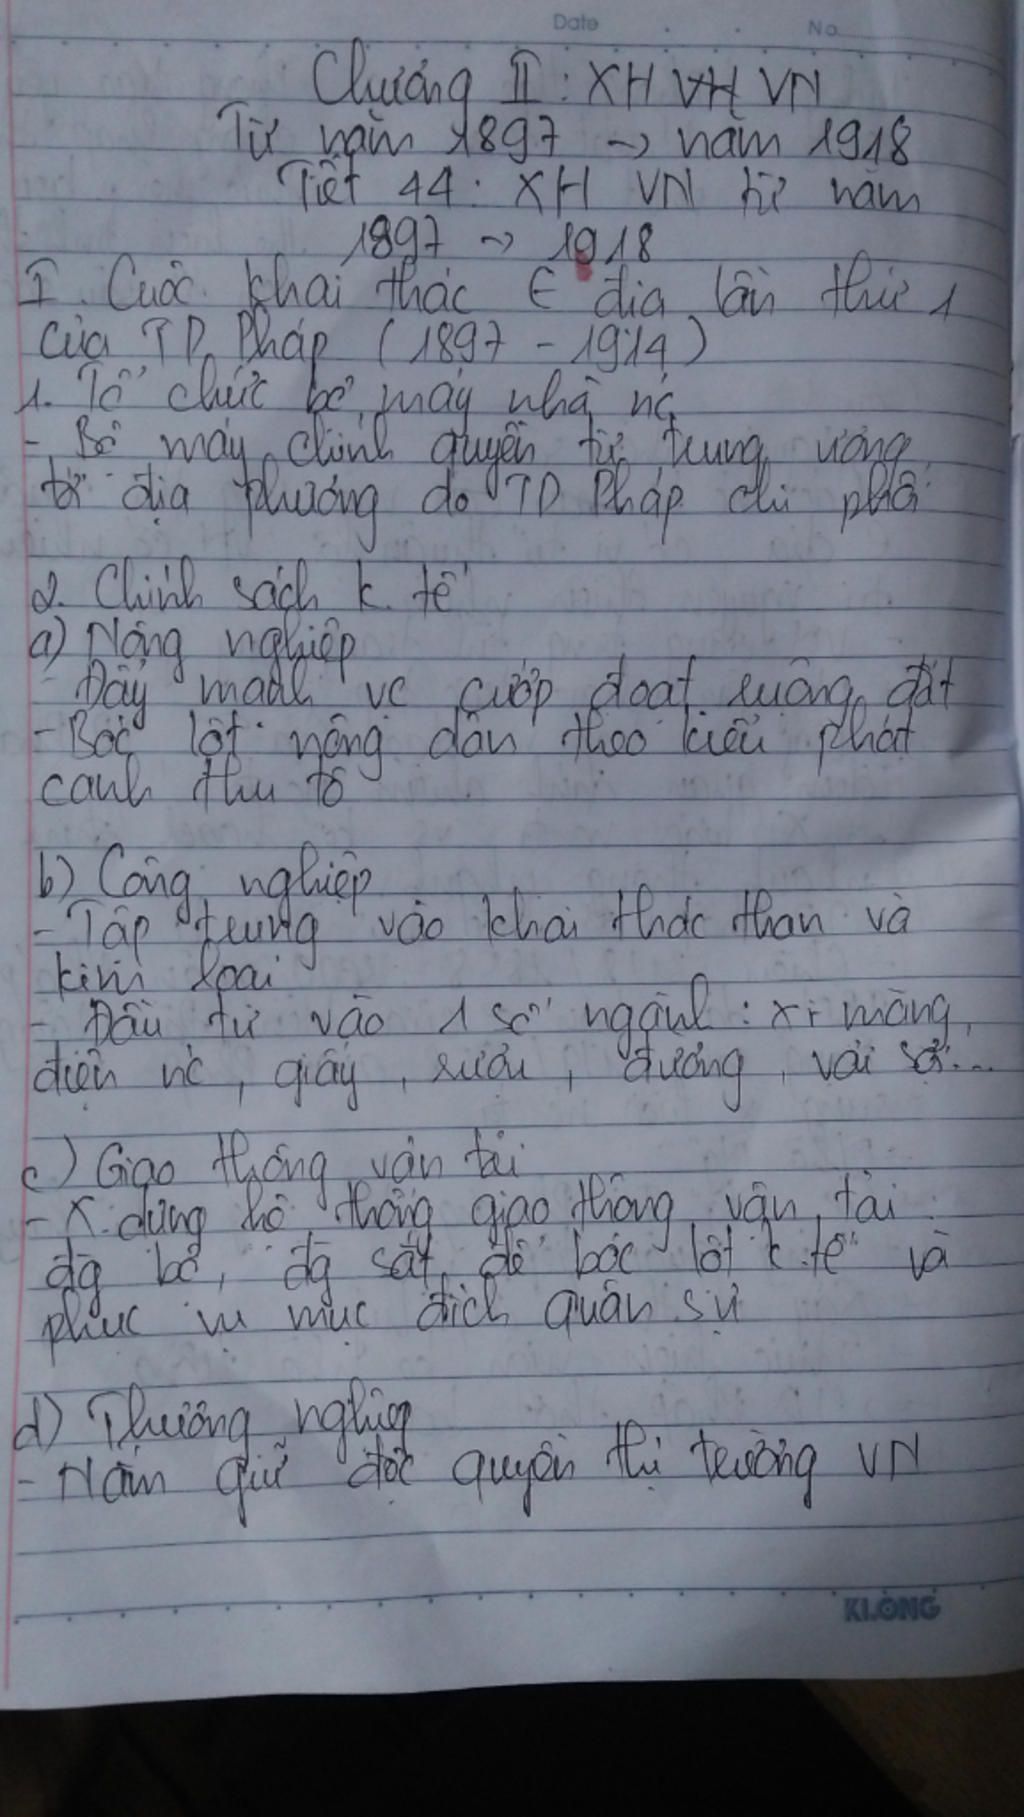 Date No
Chương II : XH VH VN
Từ năm 1897 → năm 1918
Tiết 44 : XH VN từ năm
1897 → 1918
I. Cuộc khai thác € địa lần thứ 1
của TD Pháp (1897 - 1914)
1. Tổ chức bộ máy nhà nc
- Bộ máy chính quyền từ trung ương
tới địa phương do TD Pháp chi phối
2. Chính sách k. tế
a) Nông nghiệp
- Đẩy mạnh vc cướp đoạt ruộng đất
- Bóc lột nông dân theo kiểu phát
canh thu tô
b) Công nghiệp
- Tập trung vào khai thác than và
kim loại
- Đầu tư vào 1 số ngành : xi măng,
điện nc, giấy, rượu, đường, vải sợi...
c) Giao thông vận tải
- X. dựng hệ thống giao thông vận tải
đg bộ, đg sắt để bóc lột k. tế và
phục vụ mục đích quân sự
d) Thương nghiệp
- Nắm giữ độc quyền thị trường VN
KLONG